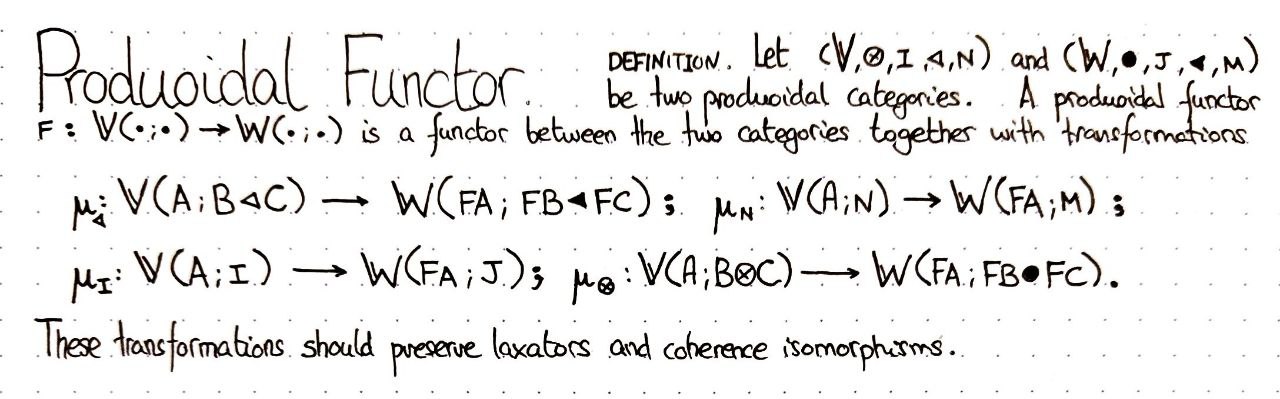 Produoidal Functor. DEFINITION. Let (𝕍,⊗,I,◁,N) and (𝕎,●,J,◀,M)
be two produoidal categories. A produoidal functor
F : 𝕍(•;•) → 𝕎(•;•) is a functor between the two categories together with transformations
μ◁: 𝕍(A;B◁C) → 𝕎(FA; FB◀FC); μN: 𝕍(A;N) → 𝕎(FA;M);
μI: 𝕍(A;I) → 𝕎(FA;J); μ⊗: 𝕍(A;B⊗C) → 𝕎(FA;FB●FC).
These transformations should preserve laxators and coherence isomorphisms.